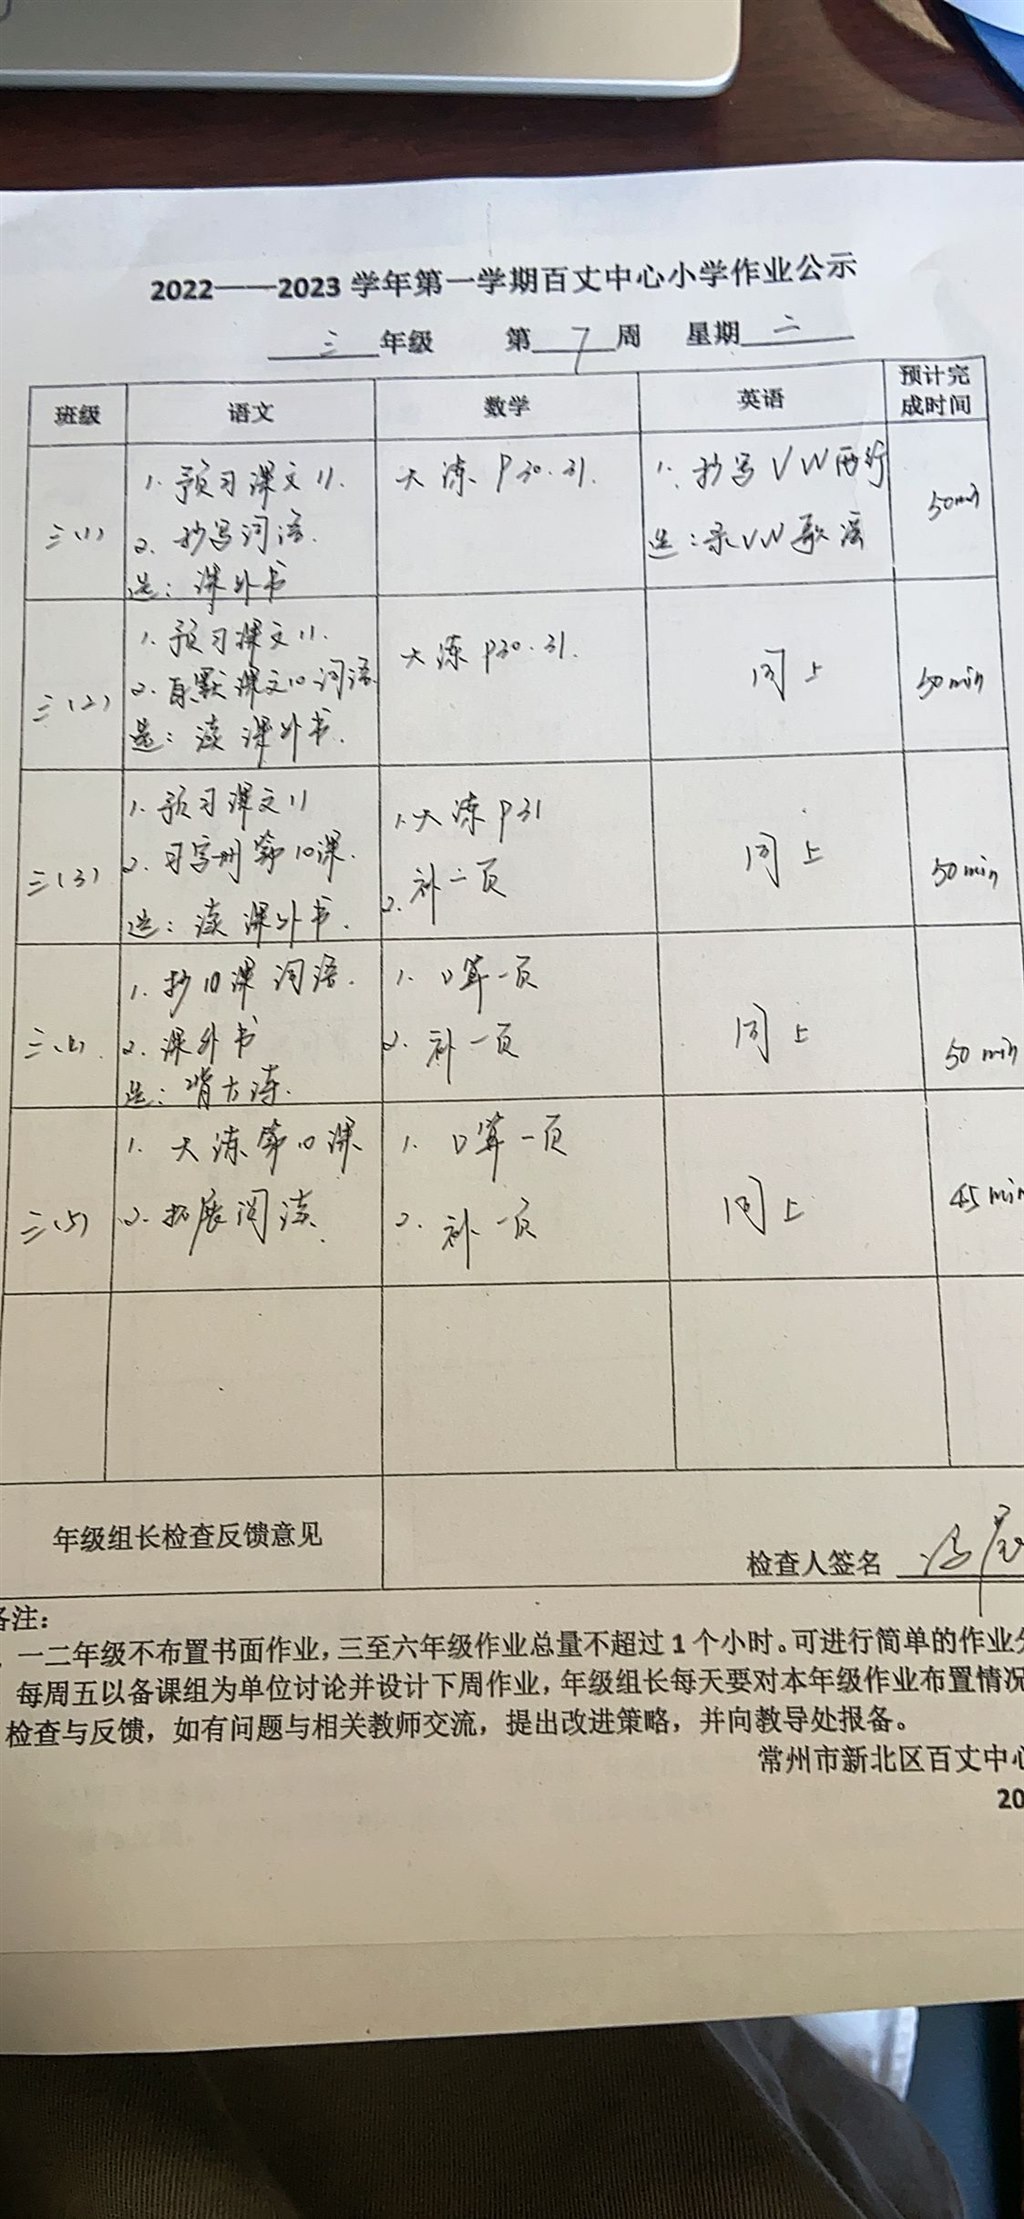 2022——2023 学年第一学期百丈中心小学作业公示
三 年级 第 7 周 星期 二
班级 语文 数学 英语 预计完
成时间
三(1)
1. 预习课文11.
2. 抄写词语.
选：课外书
大练 P30.31.
1. 抄写 V W两行
选：录VW歌谣
50min
三(2)
1. 预习课文11.
2. 自默课文10词语.
选：读课外书.
大练 P30.31.
同上
50min
三(3)
1. 预习课文11
2. 习字册第10课.
选：读课外书.
1. 大练 P31
2. 补一页
同上
50min
三(4)
1. 抄10课词语.
2. 课外书
选：背古诗.
1. 口算一页
2. 补一页
同上
50min
三(5)
1. 大练第10课
2. 拓展阅读.
1. 口算一页
2. 补一页
同上
45min
年级组长检查反馈意见
检查人签名
备注：
一二年级不布置书面作业，三至六年级作业总量不超过 1 个小时。可进行简单的作业分
每周五以备课组为单位讨论并设计下周作业，年级组长每天要对本年级作业布置情况
检查与反馈，如有问题与相关教师交流，提出改进策略，并向教导处报备。
常州市新北区百丈中心
20